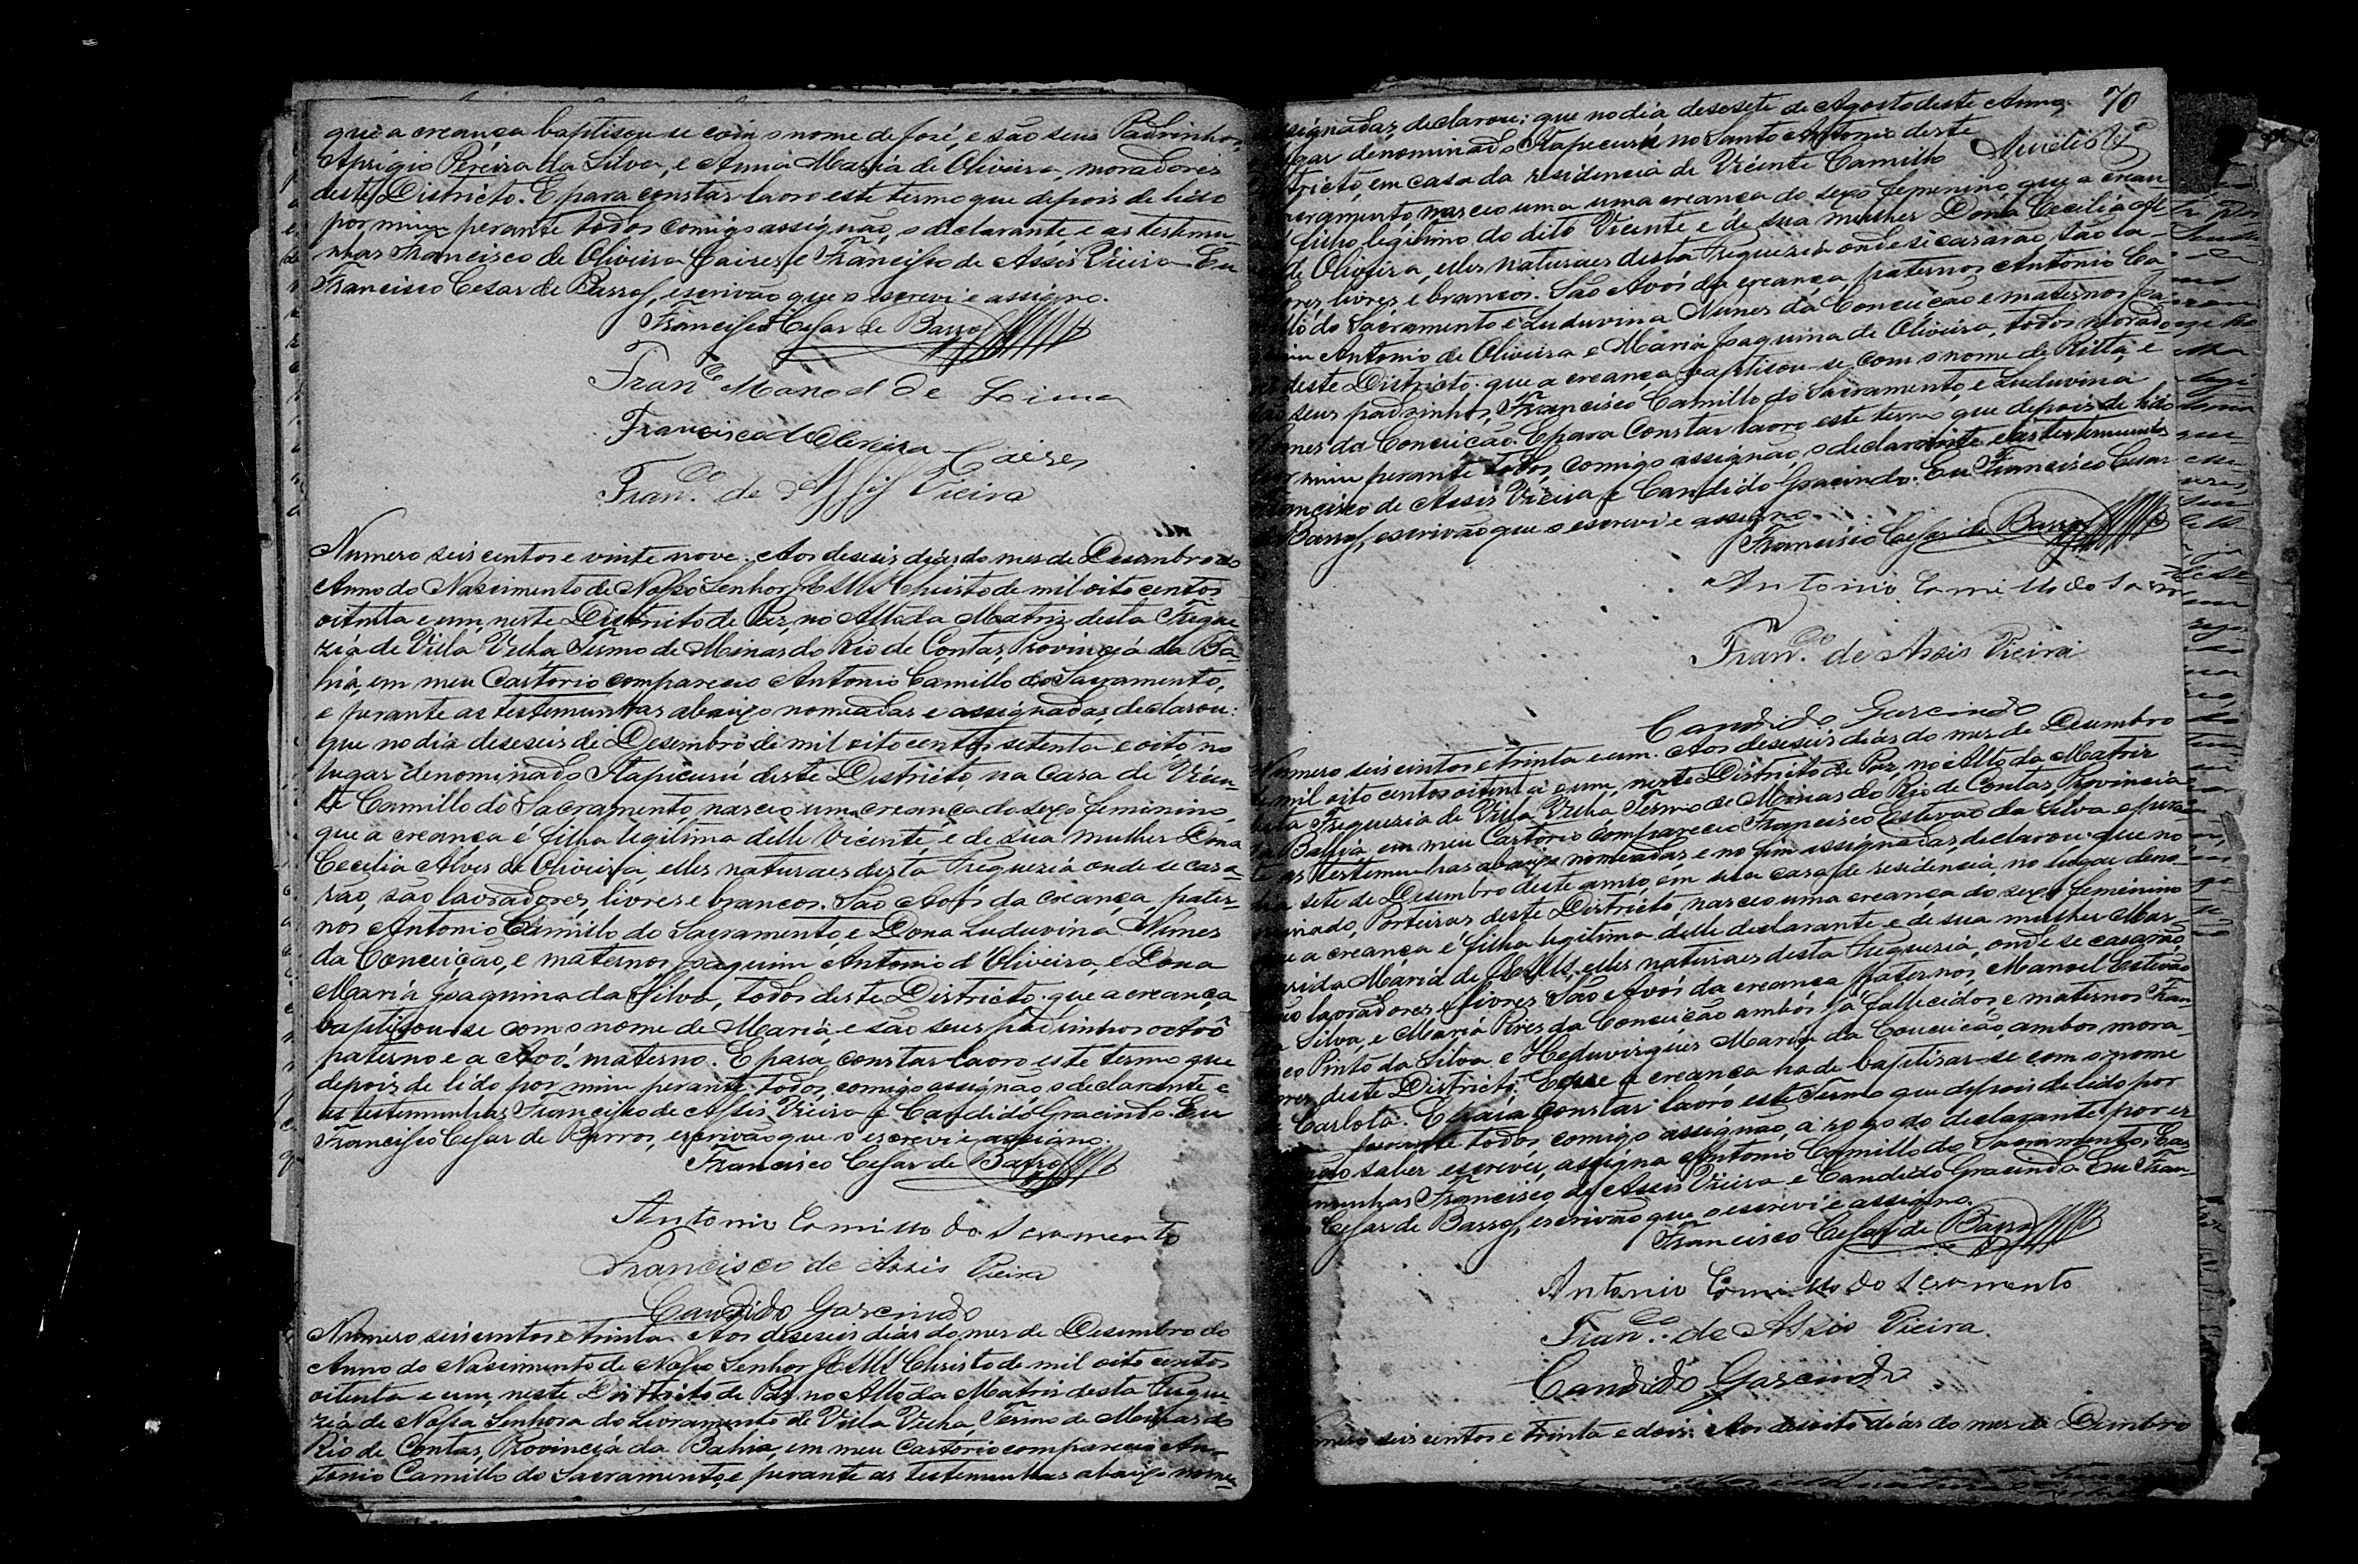 que a creança baptisou-se com o nome de José, e são seus Padrinhos
Aprigio Pereira da Silva, e Anna Maria de Oliveira, moradores
deste Districto. E para constar lavro este termo que depois de lido
por mim perante todos comigo assignão, o declarante, e as testemu-
nhas Francisco de Oliveira Caires, e Francisco de Assis Vieira. Eu
Francisco Cesar de Barros, escrivão que o escrevi e assigno.
Francisco Cesar de Barros
Franco Manoel de Lima
Francisco de Oliveira Caires
Franco de Assis Vieira
Numero seis centos e vinte nove. Aos deseseis dias do mes de Desembro do
Anno do Nascimento de Nosso Senhor JESUS Christo de mil oito centos
oitenta e um, neste Districto de Paz, no Alto da Matriz desta Fregue
zia de Villa Velha Termo de Minas do Rio de Contas, Provincia da Ba-
hia, em meu Cartorio compareceo Antonio Camillo do Sacramento,
e perante as testemunhas abaixo nomeadas e assignadas, declarou:
que no dia deseseis de Desembro de mil oito centos setenta e oito, no
lugar denominado Itapicurú deste Districto, na casa de Vicen-
te Camillo do Sacramento nasceo uma creança do sexo feminino,
que a creança é filha legitima delle Vicente, e de sua mulher Dona
Cecilia Alves de Oliveira, elles naturaes desta Freguezia onde se casa-
rão, são lavradores, livres e brancos. São Avós da creança, pater-
nos Antonio Camillo do Sacramento, e Dona Luduvina Nunes
da Conceição, e maternos Joaquim Antonio d'Oliveira, e Dona
Maria Joaquina da Silva, todos deste Districto: que a creança
baptisou-se com o nome de Maria, e são seus padrinhos o Avô
paterno e a Avó materno. E para constar lavro este termo que
depois de lido por mim perante todos, comigo assignão, o declarante e
as testemunhas Francisco de Assis Vieira e Candido Gracindo. Eu
Francisco Cesar de Barros, escrivão que o escrevi e assigno.
Francisco Cesar de Barros
Antonio Camillo do Sacramento
Francisco de Assis Vieira
Candido Garcindo
Numero seis centos e trinta. Aos deseseis dias do mes de Desembro do
Anno do Nascimento de Nosso Senhor JESUS Christo de mil oito centos
oitenta e um, neste Districto de Paz no Alto da Matriz desta Fregue-
zia de Nossa Senhora do Livramento de Villa Velha, Termo de Minas do
Rio de Contas, Provincia da Bahia, em meu Cartorio compareceo An-
tonio Camillo do Sacramento, e perante as testemunhas abaixo nomea-
70
ssignadas, declarou: que no dia desesete de Agosto deste Anno,
gar denominado Itapicurú no Santo Antonio deste
tricto, em casa da residencia de Vicente Camillo
cramento, nasceo uma uma creança do sexo femenino, que a crean
filho legitimo do dito Vicente e de sua mulher Dona Cecilia
de Oliveira, elles naturaes desta Freguezia onde si casarão, são la-
ores livres e brancos. São Avós da creança, paternos Antonio Ca-
llo do Sacramento e Luduvina Nunes da Conceição e maternos
Antonio de Oliveira e Maria Joaquina de Oliveira, todos morado
deste Districto: que a creança baptisou-se com o nome de Ritta, e
seus padrinhos, Francisco Camillo do Sacramento, e Luduvina
nes da Conceição. E para Constar lavro este termo, que depois de lido
mim perante todos, comigo assignão, o declarante, e as testemunhas
ncisco de Assis Vieira e Candido Gracindo. Eu Francisco Cesar
Barros, escrivão que o escrevi e assigno.
Francisco Cesar de Barros
Antonio Camillo do
Franco de Assis Vieira
Candido Garcindo
mero seis centos e trinta e um. Aos deseseis dias do mes de Desembro
mil oito centos oitenta e um, neste Districto de Paz, no Alto da Matriz
Freguezia de Villa Velha, Termo de Minas do Rio de Contas, Provincia
Bahia, em meu Cartorio compareceo Francisco Estevão da Silva e peran
as testemunhas abaixo nomeadas, e no fim assignadas, declarou: que no
sete de Desembro deste anno, em sua casa de residencia, no lugar deno
inado, Porteiras deste Districto, nasceo uma creança do sexo feminino
a creança é filha legitima delle declarante e de sua mulher Mar
Maria de JESUS, elles naturaes desta Freguezia, onde se casarão,
lavradores, e livres. São Avós da creança paternos, Manoel Estevão
Silva, e Maria Pires da Conceição ambos já fallecidos, e maternos Fran
co Pinto da Silva e Heduvirgens Maria da Conceição, ambos mora-
res deste Districto. E que a creança ha de baptisar-se com o nome
Carlota. E para constar lavro este Termo que depois de lido por
perante todos, comigo assignão, a rogo do declarante por
não saber escrever, assigna Antonio Camillo do Sacramento, e as
munhas Francisco de Assis Vieira e Candido Gracindo. Eu Fran-
Cesar de Barros, escrivão que o escrevi e assigno.
Francisco Cesar de Barros
Antonio Camillo do Sacramento
Franco de Assis Vieira.
Candido Garcindo
mero seis centos e trinta e dois. Aos desoito dias do mes de Desembro